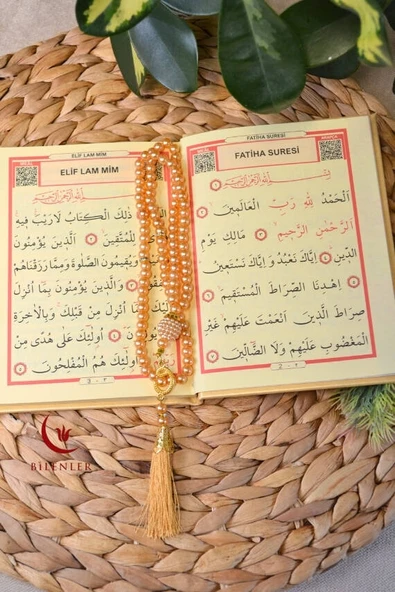 FATİHA SURESİ
FATİHA SURESİ
بِسْمِ اللّٰهِ الرَّحْمٰنِ الرَّحِيمِ
اَلْحَمْدُ لِلّٰهِ رَبِّ الْعَالَمِينَ
اَلرَّحْمٰنِ الرَّحِيمِ مَالِكِ يَوْمِ
الدِّينِ اِيَّاكَ نَعْبُدُ وَ اِيَّاكَ نَسْتَعِينُ
اِهْدِنَا الصِّرَاطَ الْمُسْتَقِيمَ
صِرَاطَ الَّذِينَ اَنْعَمْتَ عَلَيْهِمْ غَيْرِ
الْمَغْضُوبِ عَلَيْهِمْ وَلَا الضَّالِّينَ
2 - ٢
ELİF LAM MİM
ELİF LAM MİM
بِسْمِ اللّٰهِ الرَّحْمٰنِ الرَّحِيمِ
ذٰلِكَ الْكِتَابُ لَارَيْبَ فِيهِ
لِلْمُتَّقِينَ اَلَّذِينَ يُؤْمِنُونَ
وَيُقِيمُونَ الصَّلٰوةَ وَمِمَّا رَزَقْنَاهُمْ
وَالَّذِينَ يُؤْمِنُونَ بِمَا اُنْزِلَ
اُنْزِلَ مِنْ قَبْلِكَ وَبِالْاٰخِرَةِ
اُولٰئِكَ عَلٰى هُدًى مِنْ
اُولٰئِكَ هُمُ الْمُفْلِحُونَ
3 - ٣
BİLENLER